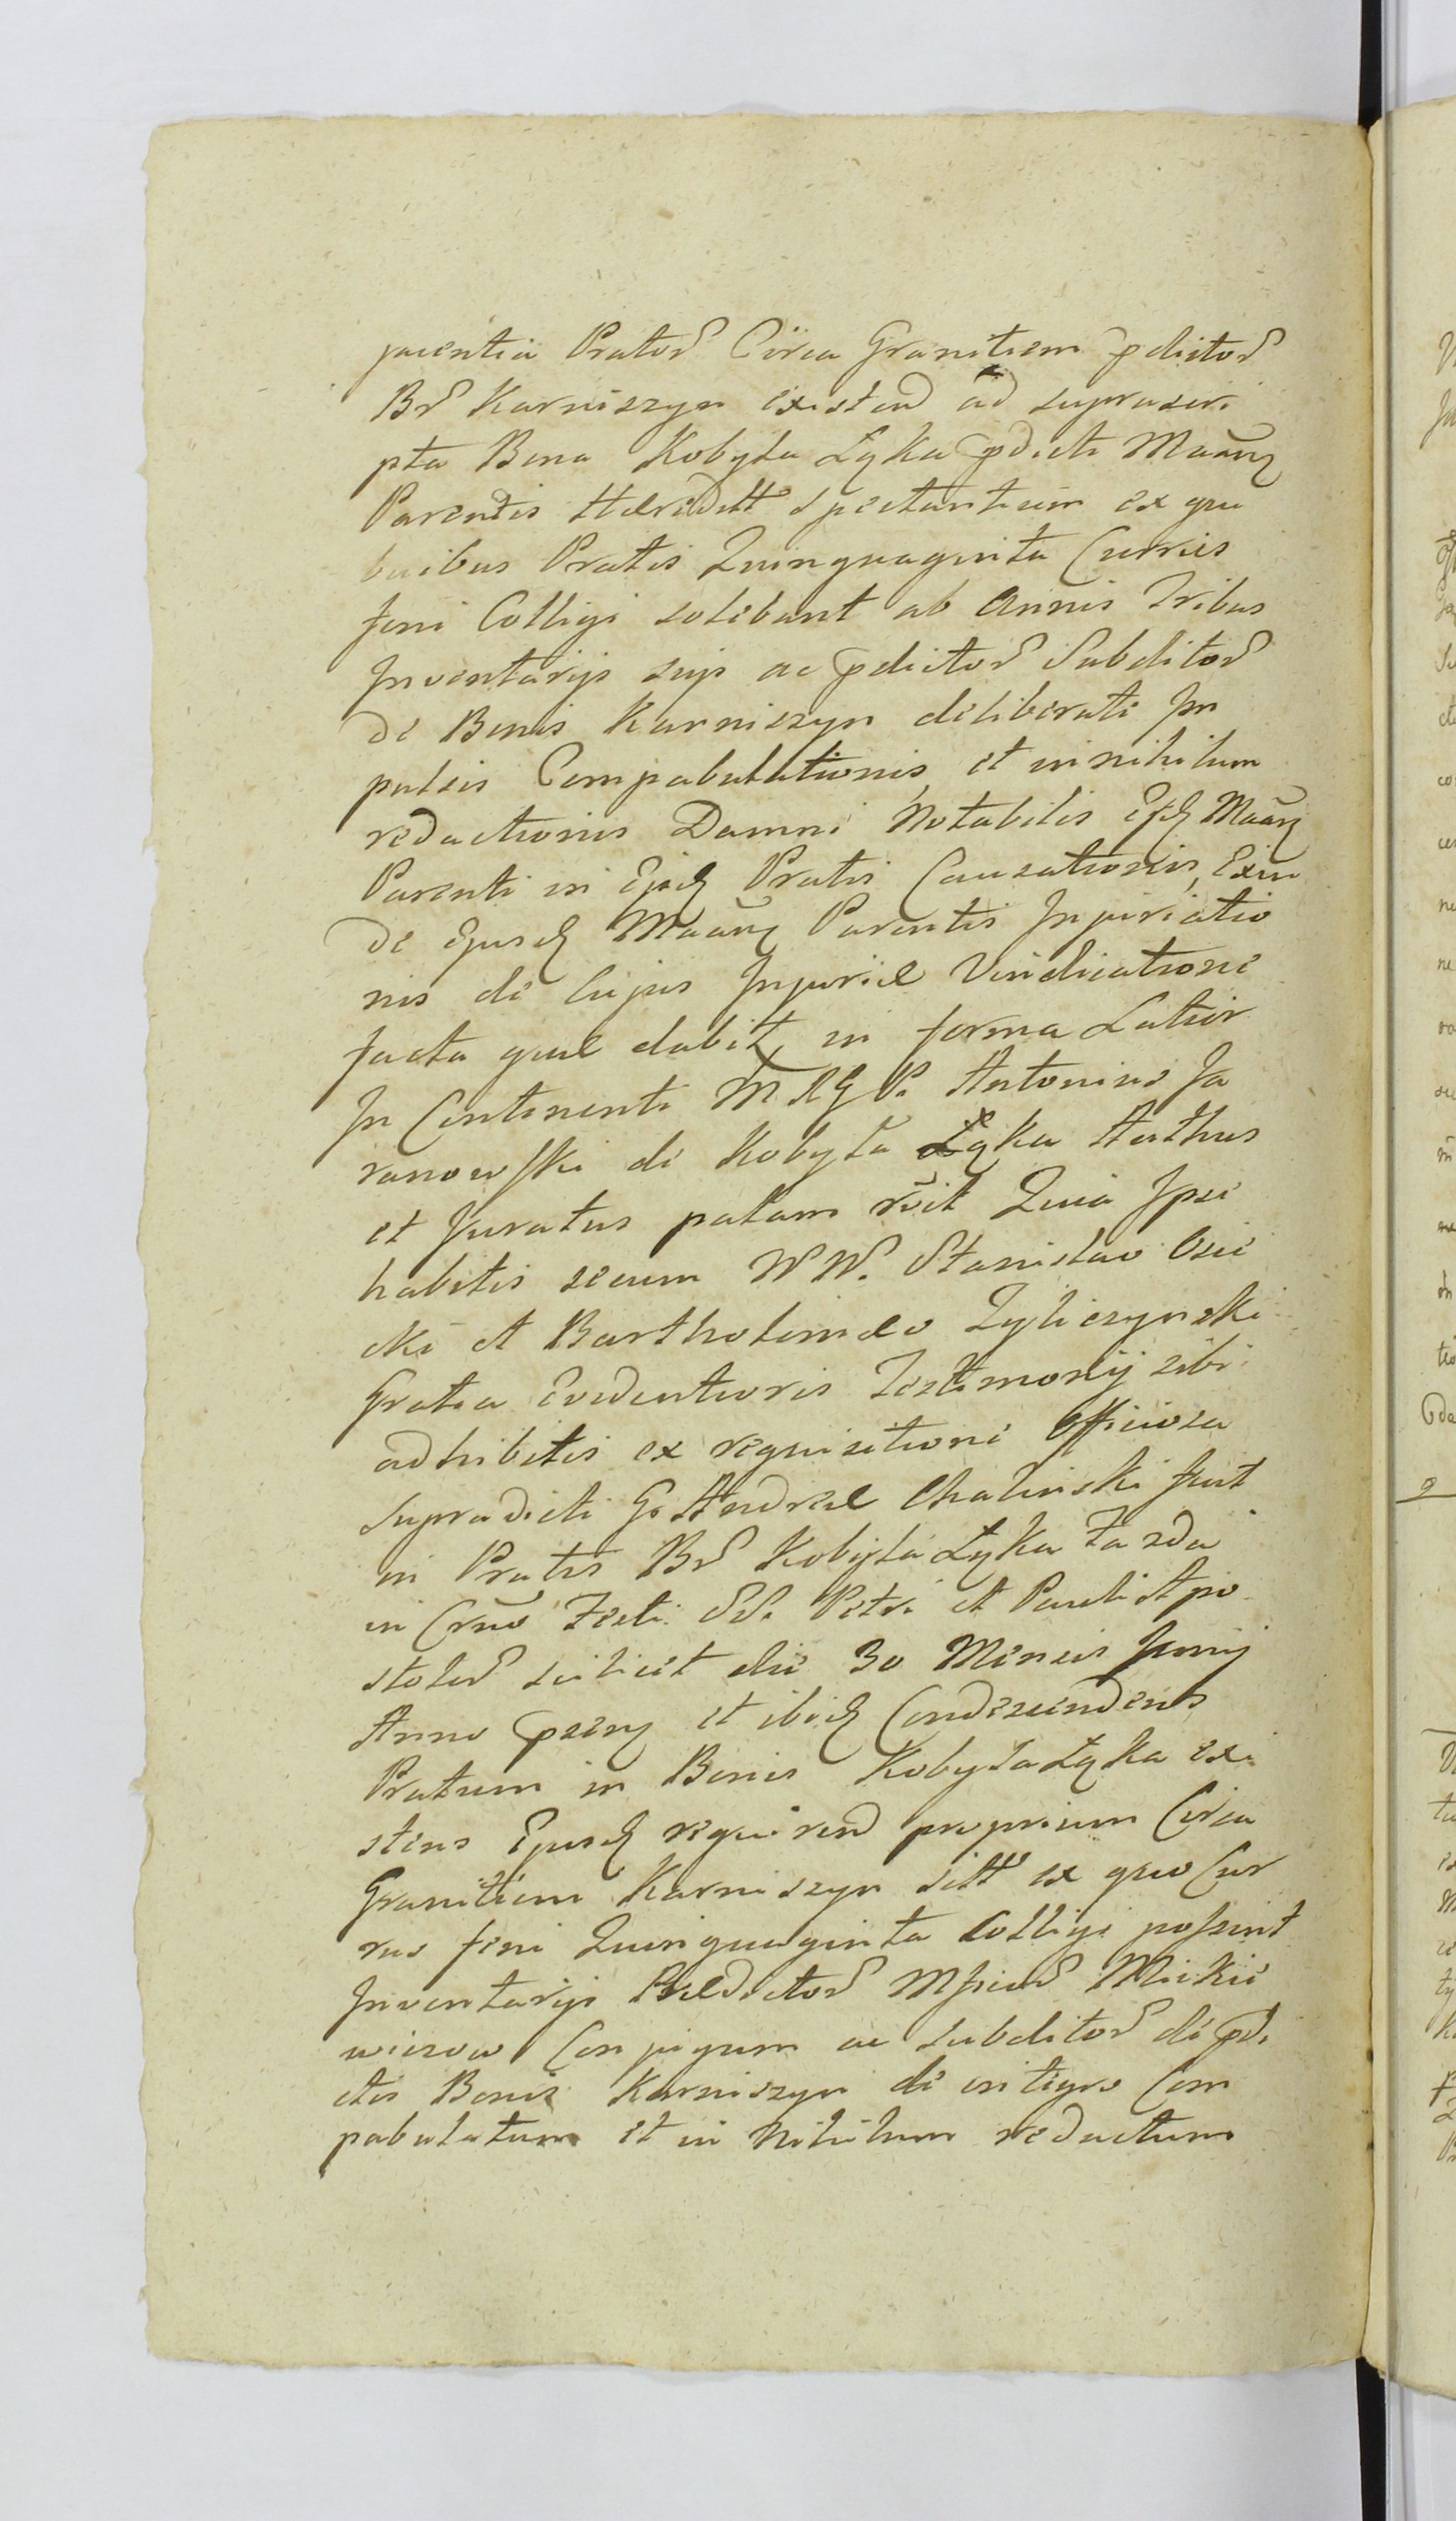 jacentia Prator Circa Granitiem pdictor
Br Karniszyn existend ad suprascri
pta Bona Kobyla Łąka pdicti Maañ
Parentis Haereditt Spectantium ex qui
buibus Pratis Quinquaginta Currus
foeni Colligi solebant ab Annis Tribus
Inventarijs suijs ac pdictor Subditor
de Bonis Karniszyn deliberate Im
pulsis Compabulationis, et in nihilum
redactionis Damni Notabilis Ejsd Maañ
Parenti in Ejsd Pratis Causationis, Exin
de Ejusd Maañ Parentis Injuriatio
nis de Cujus Injuriae Vindicatione
facta quae dabit, in forma Latior
In Continenti M R G P. Antonius Ja
ranowski de Kobyła Łąka Authus
et Juratus palam rõit Quia Ipse
habitis secum W W. Stanislao Osie
cki et Bartholomaeo Zyliczynski
Gratia Evidentioris Testimonij sibi
adhibitis ex requisitione Officiosa
supradicti G. Andreae Chalinski fuit
in Pratis Br Kobyła Łąka
in Crño Festi SS. Petri et Pauli Apo
stolor scilicet die 30 Mensis Junij
Anno pseñ et ibid Condescendens
Pratum in Bonis Kobyła Łąka exi
stens Ejusd requirend proprium Circa
Granitiem Karniszyn sitt ex quo Cur
rus feni Quinquaginta Colligi possint
Inventarijs Praedictor Mficor Mickie
wiczow Conjugum ac subditor de pdi
ctis Bonis Karniszyn de integro Com
pabulatum et in Nihilum redactum